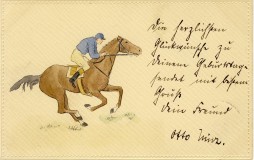 Die herzlichsten
Glückwünsche zu
deinem Geburtstage
sendet mit bestem
Gruß
dein Freund
Otto